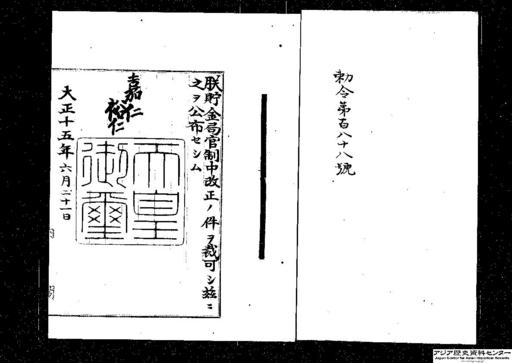 勅令第百八十八號
朕貯金局官制中改正ノ件ヲ裁可シ茲ニ
之ヲ公布セシム
嘉仁
裕仁
天皇
御璽
大正十五年六月二十一日
内閣
アジア歴史資料センター
Japan Center for Asian Historical Records